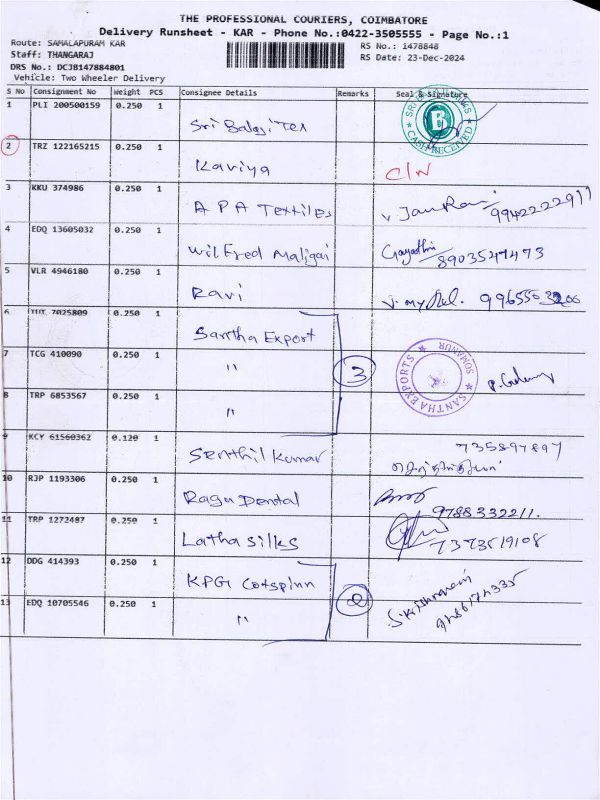 THE PROFESSIONAL COURIERS, COIMBATORE
Delivery Runsheet - KAR - Phone No.:0422-3505555 - Page No.:1
Route: SAMALAPURAM KAR RS No.: 1478848
Staff: THANGARAJ RS Date: 23-Dec-2024
DRS No.: DCJB147884801
Vehicle: Two Wheeler Delivery
S No Consignment No Weight PCS Consignee Details Remarks Seal & Signature
1 PLI 200500159 0.250 1
Sri Balaji Tex
B CASH RECEIVED
2 TRZ 122165215 0.250 1
Kaviya C/N
3 KKU 374986 0.250 1
A P A Textiles 9942222911
4 EDQ 13605032 0.250 1
Wilfred Maligai Gayathri 8903547473
5 VLR 4946180 0.250 1
Ravi
6 7025809 0.250 1
Santha Export
7 TCG 410090 0.250 1
" 3 SANTHA EXPORTS SOMANUR
8 TRP 6853567 0.250 1
"
9 KCY 61560362 0.120 1
Senthil Kumar 735897897
10 RJP 1193306 0.250 1
Ragu Dental 9788332211.
11 TRP 1272487 0.250 1
Latha Silks 7373519108
12 DDG 414393 0.250 1
KPG Cotspinn
13 EDQ 10705546 0.250 1
" 2